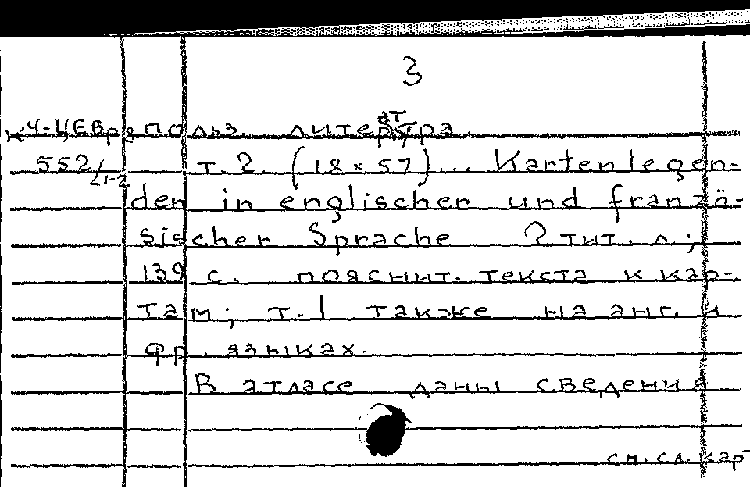 3
Ч-ЦЕВр польз. литература
552/1-2 т. 2. (18 × 57)... Kartenlegen-
den in englischer und franzö-
sischer Sprache 2 тит. л.;
139 с. пояснит. текста к кар-
там; т. 1 также на анг. и
фр. языках.
В атласе даны сведения
см. сл. кар